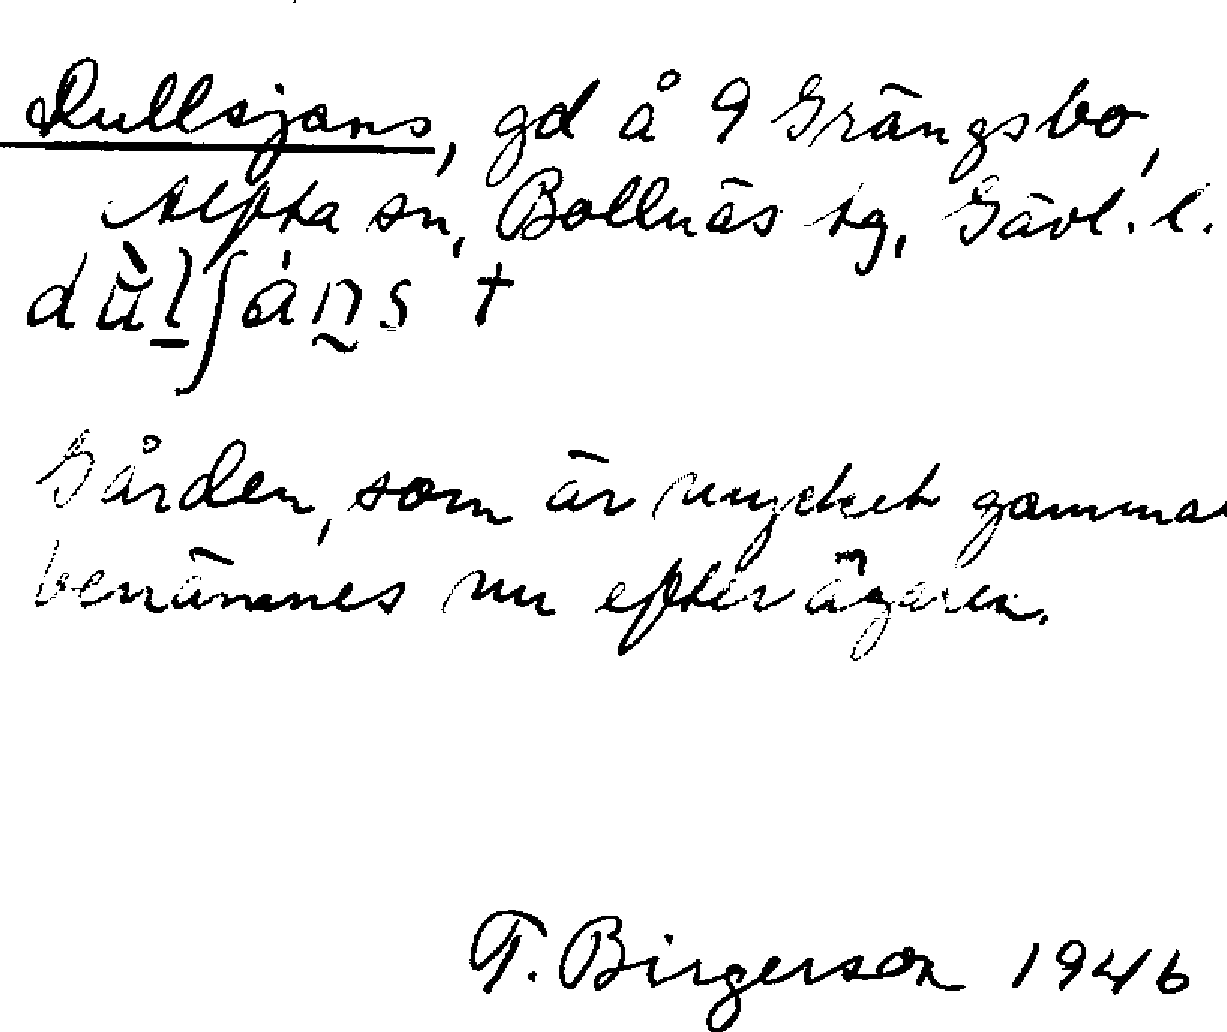 Dullsjans, gd å 9 Grängsbo,
Alfta sn, Bollnäs tg, Gävl. l.
dùlʃáns †
Gården, som är mycket gammal
benämnes nu efter ägaren.
T. Birgerson 1946